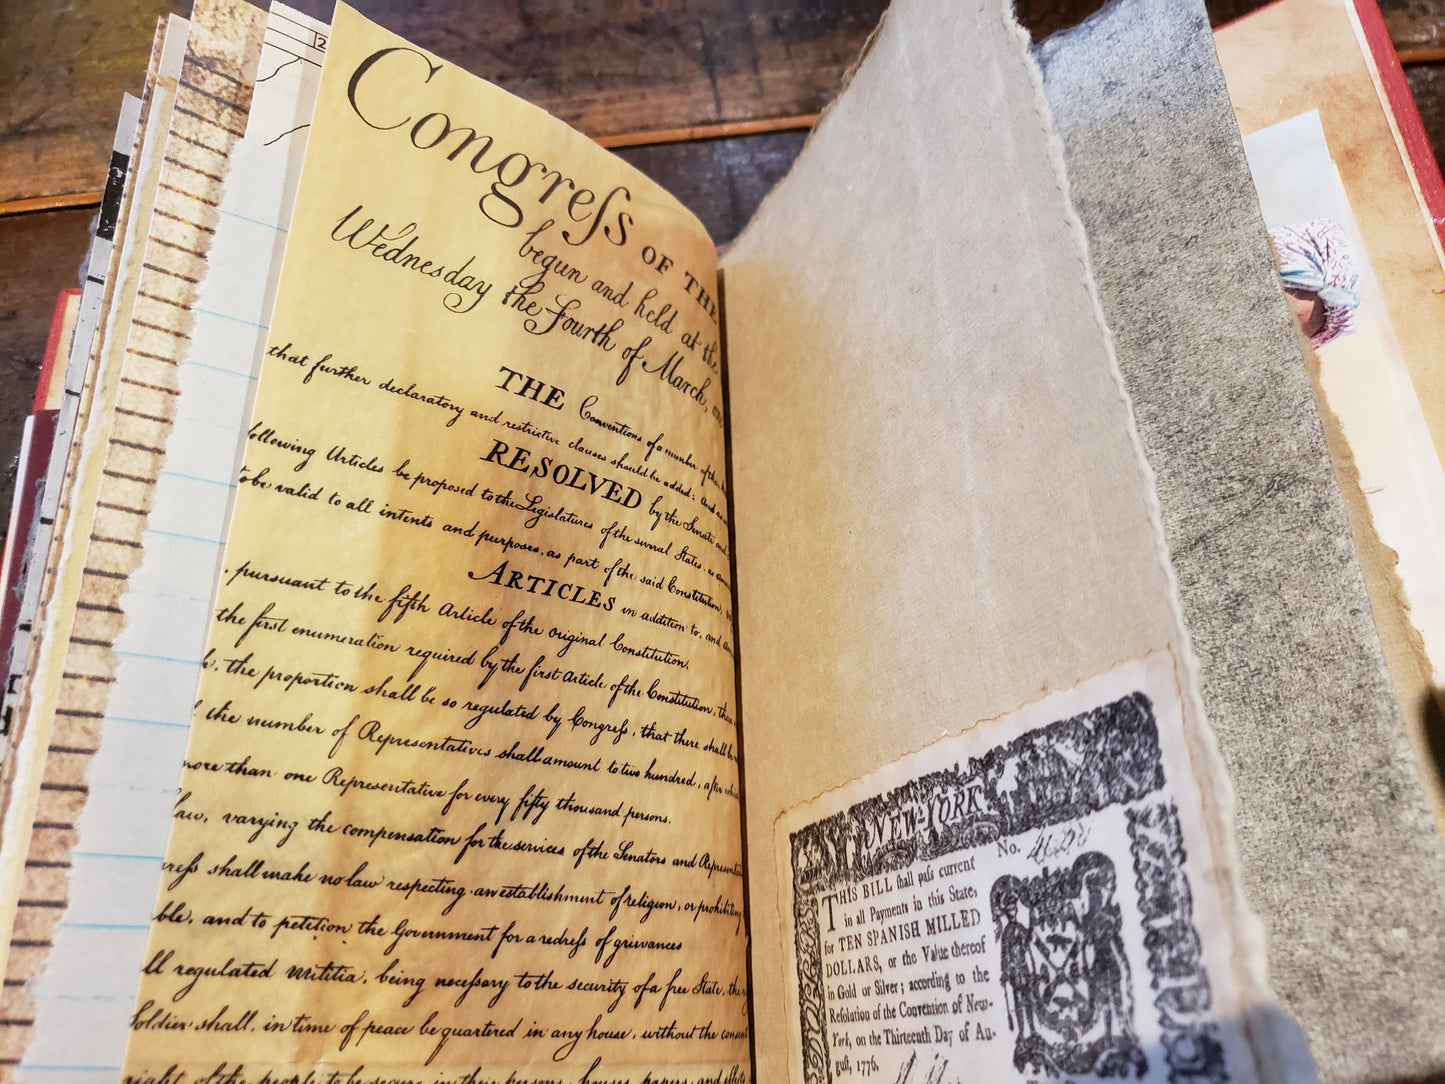 Congreſs OF THE
begun and held at the
Wednesday the Fourth of March,
THE Conventions of a number of the
that further declaratory and restrictive clauses should be added: And as
RESOLVED by the Senate and
following Articles be proposed to the Legislatures of the several States, as
to be valid to all intents and purposes, as part of the said Constitution,
ARTICLES in addition to, and
, pursuant to the fifth Article of the original Constitution.
the first enumeration required by the first Article of the Constitution, there
, the proportion shall be so regulated by Congreſs, that there shall be
the number of Representatives shall amount to two hundred, after which
more than one Representative for every fifty thousand persons.
law, varying the compensation for the services of the Senators and Representat
reſs shall make no law respecting an establishment of religion, or prohibiting
ble, and to petition the Government for a redreſs of grievances
ll regulated militia, being neceſsary to the security of a free State, the
Soldier shall, in time of peace be quartered in any house, without the consent
right of the people to be secure in their persons, houses, papers, and effects
2
NEW-YORK
No.
THIS BILL ſhall paſs current
in all Payments in this State,
for TEN SPANISH MILLED
DOLLARS, or the Value thereof
in Gold or Silver; according to the
Reſolution of the Convention of New-
York, on the Thirteenth Day of Au-
guſt, 1776.